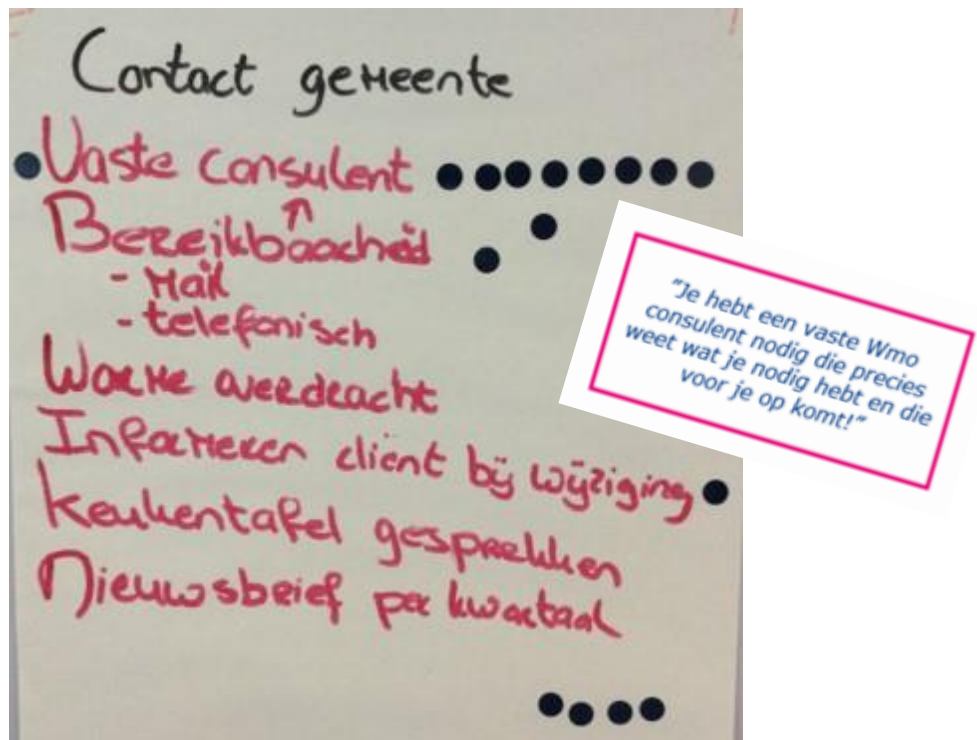 Contact gemeente
Vaste consulent
Bereikbaarheid
- Mail
- telefonisch
Warme overdracht
Informeren cliënt bij wijziging
Keukentafel gesprekken
Nieuwsbrief per kwartaal
"Je hebt een vaste Wmo
consulent nodig die precies
weet wat je nodig hebt en die
voor je op komt!"